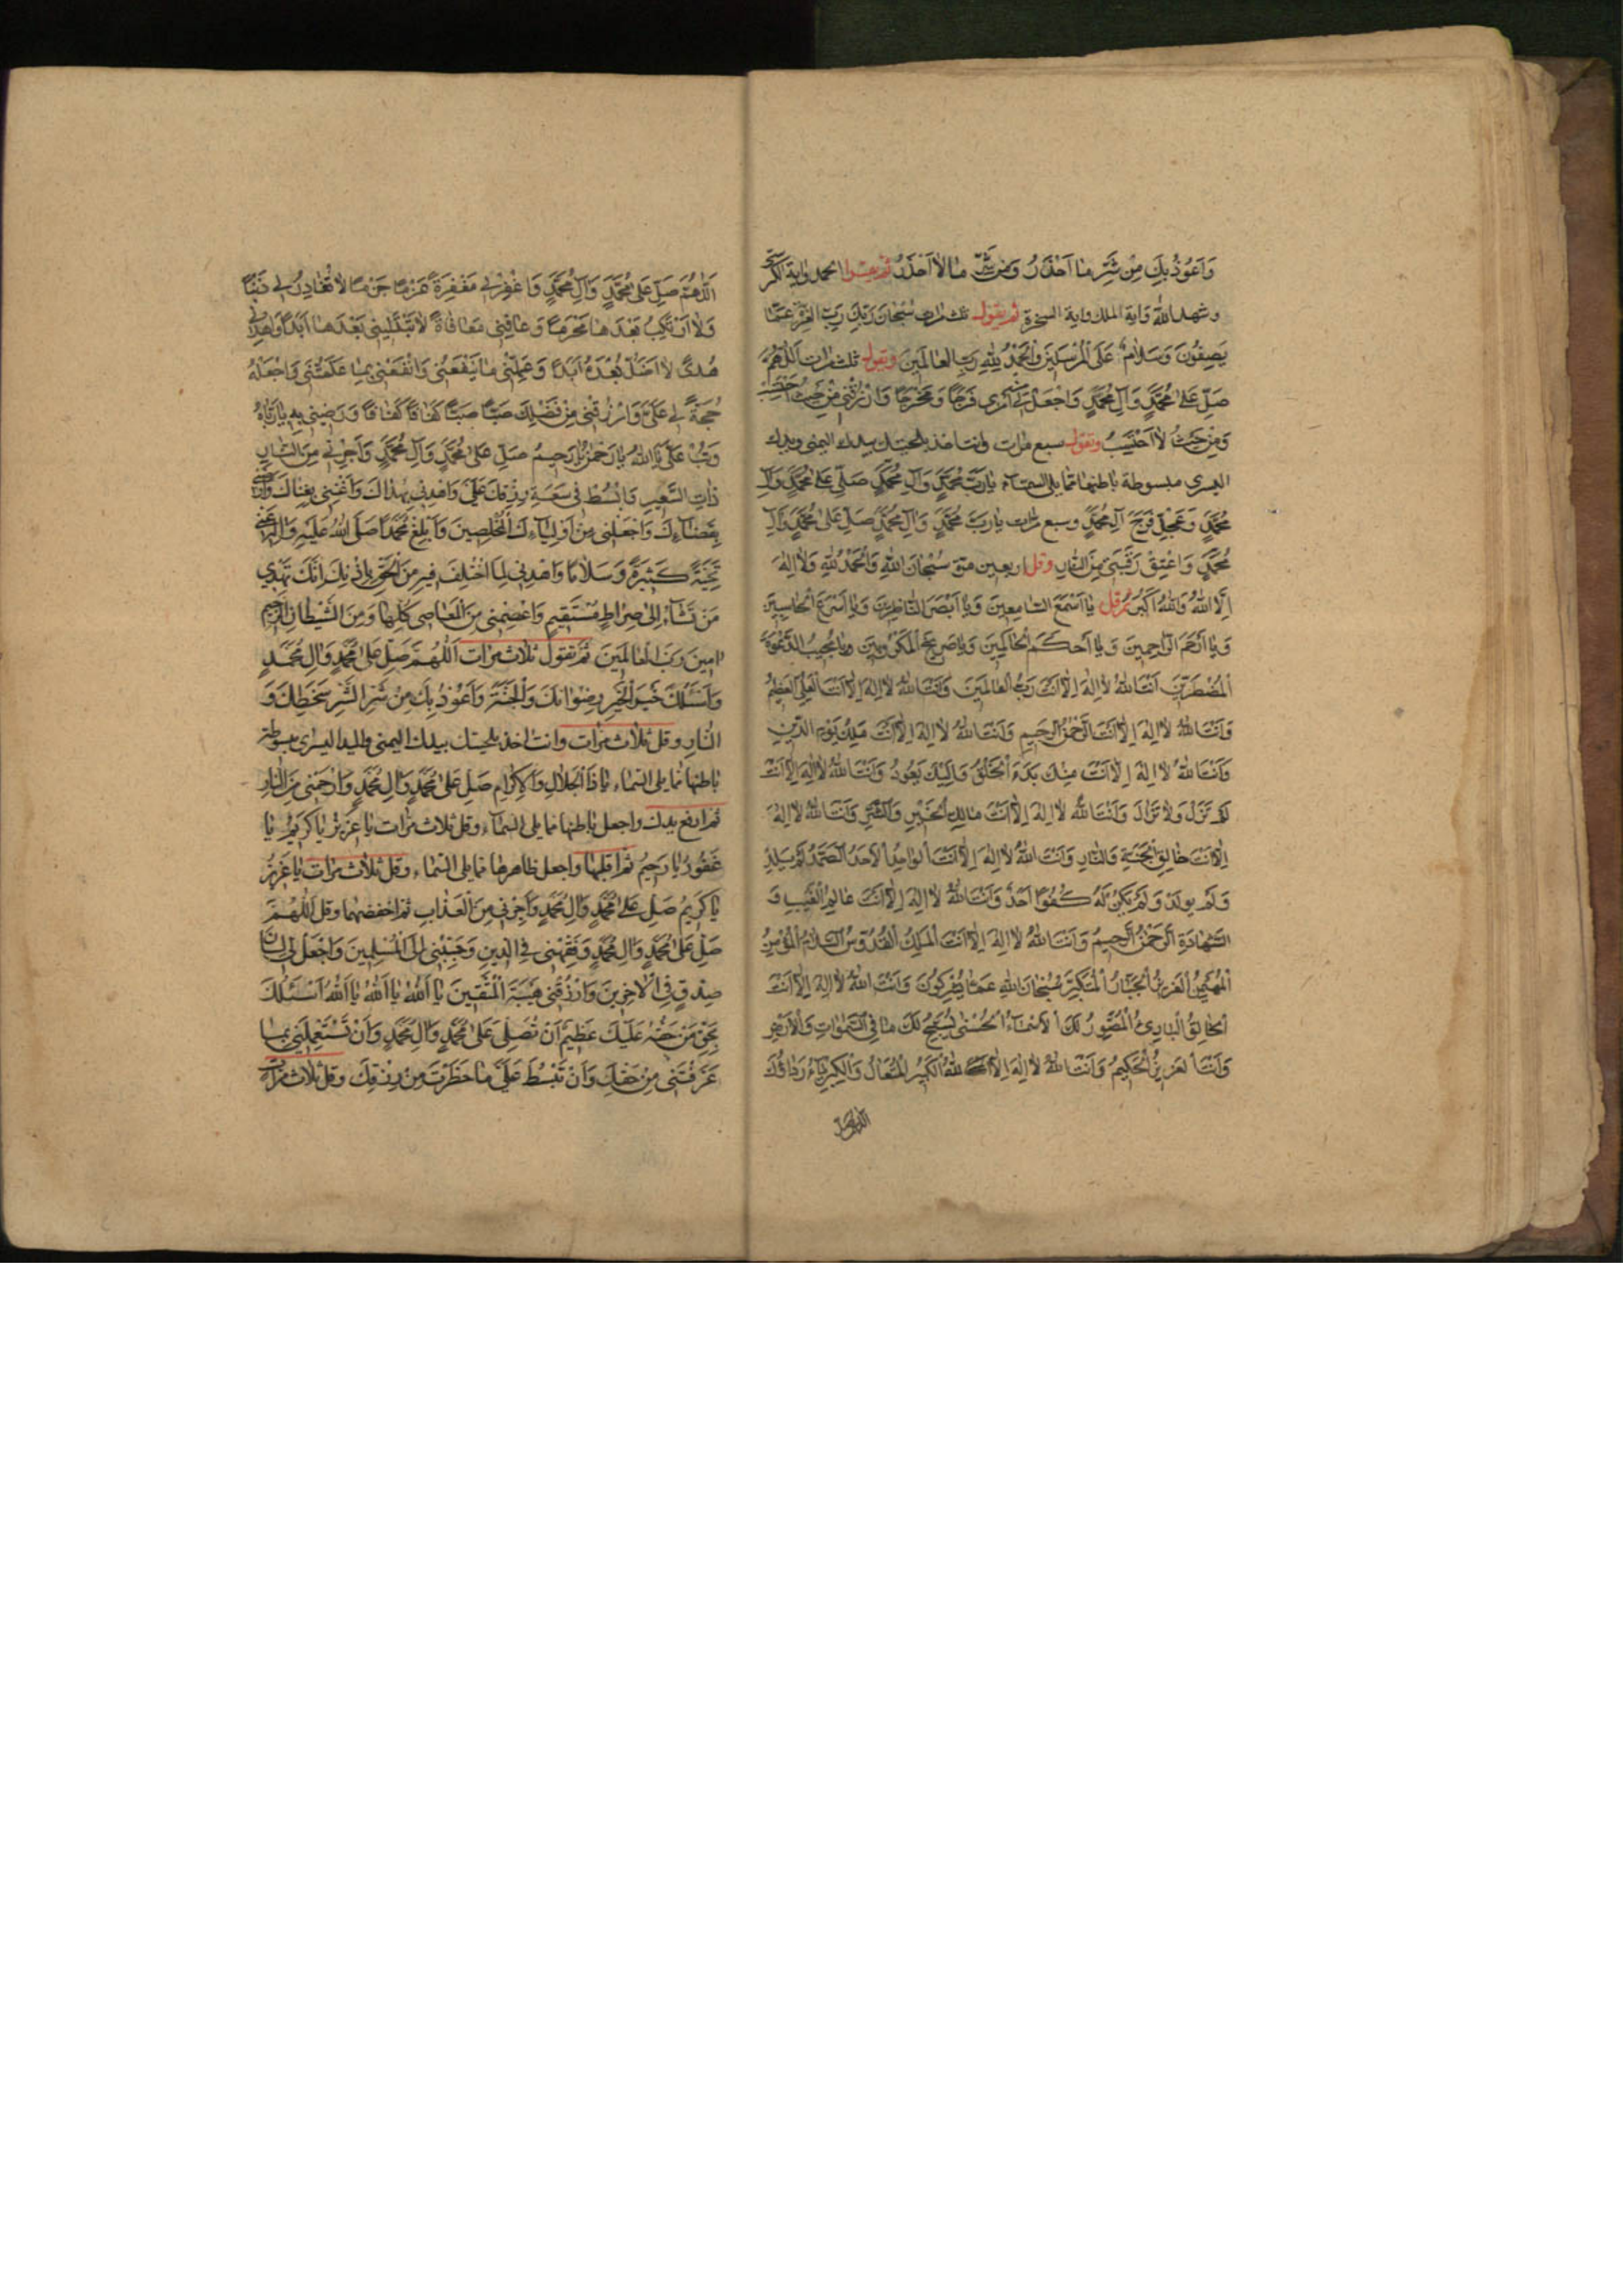 وَاَعُوذُ بِكَ مِنْ شَرِّ مٰا اَحْذَرُ وَمِنْ شَرِّ مٰا لاٰ اَحْذَرُ ثم يقرا الحمد واية الكرسي
وشهد الله واية الملك واية السخرة ثم يقول ثلث مرات سُبْحٰانَ رَبِّكَ رَبِّ الْعِزَّةِ عَمّٰا
يَصِفُونَ وَسَلاٰمٌ عَلَى الْمُرْسَلِينَ وَالْحَمْدُ لِلّٰهِ رَبِّ الْعٰالَمِينَ ويقول ثلث مرات اَللّٰهُمَّ
صَلِّ عَلىٰ مُحَمَّدٍ وَآلِ مُحَمَّدٍ وَاجْعَلْ لِي مِنْ اَمْرِي فَرَجًا وَمَخْرَجًا وَارْزُقْنِي مِنْ حَيْثُ اَحْتَسِبُ
وَمِنْ حَيْثُ لاٰ اَحْتَسِبُ وتقول سبع مرات وانت اخذ بلحيتك بيدك اليمنى ويدك
اليسرى مبسوطة باطنها مما يلي السماء يٰا رَبَّ مُحَمَّدٍ وَآلِ مُحَمَّدٍ صَلِّ عَلىٰ مُحَمَّدٍ وَآلِ
مُحَمَّدٍ وَعَجِّلْ فَرَجَ آلِ مُحَمَّدٍ وسبع مرات يٰا رَبَّ مُحَمَّدٍ وَآلِ مُحَمَّدٍ صَلِّ عَلىٰ مُحَمَّدٍ وَآلِ
مُحَمَّدٍ وَاعْتِقْ رَقَبَتِي مِنَ النّٰارِ وقل اربعين مرة سُبْحٰانَ اللهِ وَالْحَمْدُ لِلّٰهِ وَلاٰ اِلٰهَ
اِلَّا اللهُ وَاللهُ اَكْبَرُ ثم قل يٰا اَسْمَعَ السّٰامِعِينَ وَيٰا اَبْصَرَ النّٰاظِرِينَ وَيٰا اَسْرَعَ الْحٰاسِبِينَ
وَيٰا اَرْحَمَ الرّٰاحِمِينَ وَيٰا اَحْكَمَ الْحٰاكِمِينَ وَيٰا صَرِيخَ الْمَكْرُوبِينَ وَيٰا مُجِيبَ الدَّعْوَةِ
الْمُضْطَرِّينَ اَنْتَ اللهُ لاٰ اِلٰهَ اِلاّٰ اَنْتَ رَبُّ الْعٰالَمِينَ وَاَنْتَ اللهُ لاٰ اِلٰهَ اِلاّٰ اَنْتَ الْعَلِيُّ الْعَظِيمُ
وَاَنْتَ اللهُ لاٰ اِلٰهَ اِلاّٰ اَنْتَ الرَّحْمٰنُ الرَّحِيمِ وَاَنْتَ اللهُ لاٰ اِلٰهَ اِلاّٰ اَنْتَ مَلِكُ يَوْمِ الدِّينِ
وَاَنْتَ اللهُ لاٰ اِلٰهَ اِلاّٰ اَنْتَ مِنْكَ بَدَءَ الْخَلْقُ وَاِلَيْكَ يَعُودُ وَاَنْتَ اللهُ لاٰ اِلٰهَ اِلاّٰ اَنْتَ
لَمْ تَزَلْ وَلاٰ تَزٰالُ وَاَنْتَ اللهُ لاٰ اِلٰهَ اِلاّٰ اَنْتَ مٰالِكُ الْخَيْرِ وَالشَّرِّ وَاَنْتَ اللهُ لاٰ اِلٰهَ
اِلاّٰ اَنْتَ خٰالِقُ الْجَنَّةِ وَالنّٰارِ وَاَنْتَ اللهُ لاٰ اِلٰهَ اِلاّٰ اَنْتَ الْوٰاحِدُ الْاَحَدُ الصَّمَدُ لَمْ يَلِدْ
وَلَمْ يُولَدْ وَلَمْ يَكُنْ لَهُ كُفُوًا اَحَدٌ وَاَنْتَ اللهُ لاٰ اِلٰهَ اِلاّٰ اَنْتَ عٰالِمُ الْغَيْبِ وَ
الشَّهٰادَةِ الرَّحْمٰنُ الرَّحِيمُ وَاَنْتَ اللهُ لاٰ اِلٰهَ اِلاّٰ اَنْتَ الْمَلِكُ الْقُدُّوسُ السَّلاٰمُ الْمُؤْمِنُ
الْمُهَيْمِنُ الْعَزِيزُ الْجَبّٰارُ الْمُتَكَبِّرُ سُبْحٰانَ اللهِ عَمّٰا يُشْرِكُونَ وَاَنْتَ اللهُ لاٰ اِلٰهَ اِلاّٰ اَنْتَ
الْخٰالِقُ الْبٰارِئُ الْمُصَوِّرُ لَكَ الْاَسْمٰاءُ الْحُسْنىٰ يُسَبِّحُ لَكَ مٰا فِي السَّمٰوٰاتِ وَالْاَرْضِ
وَاَنْتَ الْعَزِيزُ الْحَكِيمُ وَاَنْتَ اللهُ لاٰ اِلٰهَ اِلاّٰ اللهُ الْكَبِيرُ الْمُتَعٰالُ وَالْكِبْرِيٰاءُ رِدٰاؤُكَ
اللهم صل
اَللّٰهُمَّ صَلِّ عَلىٰ مُحَمَّدٍ وَآلِ مُحَمَّدٍ وَاغْفِرْ لِي مَغْفِرَةً عَزْمًا جَزْمًا لاٰ تُغٰادِرُ لِي ذَنْبًا
وَلاٰ اَرْتَكِبُ بَعْدَهٰا مُحَرَّمًا وَعٰافِنِي مُعٰافٰاةً لاٰ تَبْتَلِينِي بَعْدَهٰا اَبَدًا وَاهْدِنِي
هُدًى لاٰ اَضَلُّ بَعْدَهُ اَبَدًا وَعَلِّمْنِي مٰا يَنْفَعُنِي وَانْفَعْنِي بِمٰا عَلَّمْتَنِي وَاجْعَلْهُ
حُجَّةً لِي عَلَيَّ وَارْزُقْنِي مِنْ فَضْلِكَ صَبًّا صَبًّا كَفٰافًا كَفٰافًا وَرَضِّنِي بِهِ يٰا رَبّٰاهُ
وَتُبْ عَلَيَّ يٰا اللهُ يٰا رَحْمٰنُ يٰا رَحِيمُ صَلِّ عَلىٰ مُحَمَّدٍ وَآلِ مُحَمَّدٍ وَاَجِرْنِي مِنَ النّٰارِ
ذٰاتِ السَّعِيرِ وَابْسُطْ فِي سَعَةِ رِزْقِكَ عَلَيَّ وَاهْدِنِي بِهُدٰاكَ وَاَغْنِنِي بِغِنٰاكَ وَاَرْضِنِي
بِقَضٰائِكَ وَاجْعَلْنِي مِنْ اَوْلِيٰائِكَ الْمُخْلَصِينَ وَاَبْلِغْ مُحَمَّدًا صَلَّى اللهُ عَلَيْهِ وَآلِهِ عَنِّي
تَحِيَّةً كَثِيرَةً وَسَلاٰمًا وَاهْدِنِي لِمَا اخْتُلِفَ فِيهِ مِنَ الْحَقِّ بِاِذْنِكَ اِنَّكَ تَهْدِي
مَنْ تَشٰاءُ اِلىٰ صِرٰاطٍ مُسْتَقِيمٍ وَاعْصِمْنِي مِنَ الْمَعٰاصِي كُلِّهٰا وَمِنَ الشَّيْطٰانِ الرَّجِيمِ
اٰمِينَ رَبَّ الْعٰالَمِينَ ثم تقول ثلاث مرات اَللّٰهُمَّ صَلِّ عَلىٰ مُحَمَّدٍ وَآلِ مُحَمَّدٍ
وَاَسْئَلُكَ خَيْرَ الْخَيْرِ رِضْوٰانَكَ وَالْجَنَّةَ وَاَعُوذُ بِكَ مِنْ شَرِّ الشَّرِّ سَخَطِكَ وَ
النّٰارِ وقل ثلاث مرات وانت اخذ بلحيتك بيدك اليمنى واليد اليسرى مبسوطة
باطنها مما يلي السماء يٰا ذَا الْجَلاٰلِ وَالْاِكْرٰامِ صَلِّ عَلىٰ مُحَمَّدٍ وَآلِ مُحَمَّدٍ وَارْحَمْنِي مِنَ النّٰارِ
ثم ارفع يدك واجعل باطنها مما يلي السماء وقل ثلاث مرات يٰا عَزِيزُ يٰا كَرِيمُ يٰا
غَفُورُ يٰا رَحِيمُ ثم اقلبها واجعل ظاهرها مما يلي السماء وقل ثلاث مرات يٰا عَزِيزُ
يٰا كَرِيمُ صَلِّ عَلىٰ مُحَمَّدٍ وَآلِ مُحَمَّدٍ وَاَجِرْنِي مِنَ الْعَذٰابِ ثم اخفضهما وقل اَللّٰهُمَّ
صَلِّ عَلىٰ مُحَمَّدٍ وَآلِ مُحَمَّدٍ وَفَقِّهْنِي فِي الدِّينِ وَحَبِّبْنِي اِلَى الْمُسْلِمِينَ وَاجْعَلْ لِي لِسٰانَ
صِدْقٍ فِي الْاٰخِرِينَ وَارْزُقْنِي هَيْبَةَ الْمُتَّقِينَ يٰا اَللهُ يٰا اَللهُ يٰا اَللهُ اَسْئَلُكَ
بِحَقِّ مَنْ حَقُّهُ عَلَيْكَ عَظِيمٌ اَنْ تُصَلِّيَ عَلىٰ مُحَمَّدٍ وَآلِ مُحَمَّدٍ وَاَنْ تَسْتَعْمِلَنِي بِمٰا
عَرَّفْتَنِي مِنْ حَقِّكَ وَاَنْ تَبْسُطَ عَلَيَّ مٰا حَظَرْتَ مِنْ رِزْقِكَ وقل ثلاث مرات